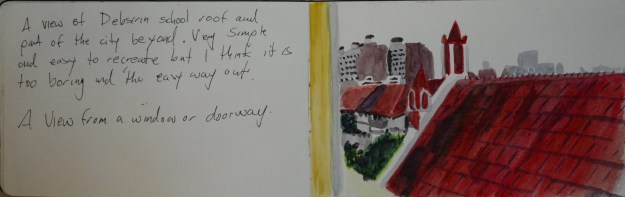 A view of Debsirin school roof and
part of the city beyond. Very simple
and easy to recreate but I think it is
too boring and the easy way out.
A View from a window or doorway.